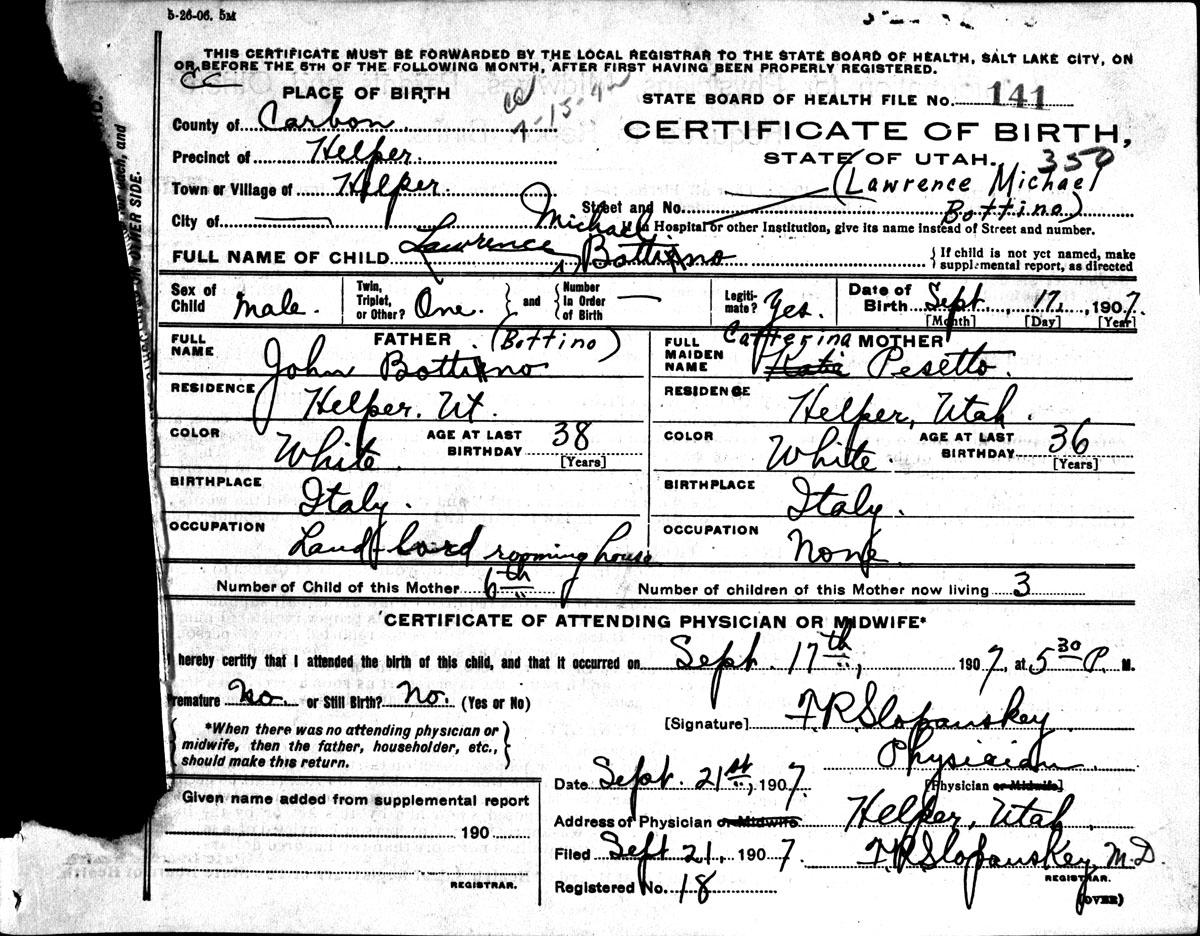 5-26-06. 5M
THIS CERTIFICATE MUST BE FORWARDED BY THE LOCAL REGISTRAR TO THE STATE BOARD OF HEALTH, SALT LAKE CITY, ON
OR BEFORE THE 5TH OF THE FOLLOWING MONTH, AFTER FIRST HAVING BEEN PROPERLY REGISTERED.
CC
PLACE OF BIRTH
STATE BOARD OF HEALTH FILE No. 141
County of Carbon
CERTIFICATE OF BIRTH,
Precinct of Helper.
STATE OF UTAH. 350
Town or Village of Helper.
(Lawrence Michael
Street and No. Bottino)
City of
If in Hospital or other Institution, give its name instead of Street and number.
Michael
FULL NAME OF CHILD Lawrence Bottino
If child is not yet named, make
supplemental report, as directed
Sex of Child Male.
Twin, Triplet, or Other? One.
and
Number in Order of Birth —
Legitimate? Yes.
Date of Birth Sept. 17, 1907.
[Month] [Day] [Year]
FULL NAME FATHER (Bottino)
John Bottino
FULL MAIDEN NAME Catterina MOTHER
Katie Pesetto.
RESIDENCE Helper. Ut.
RESIDENCE Helper, Utah.
COLOR White. AGE AT LAST BIRTHDAY 38 [Years]
COLOR White. AGE AT LAST BIRTHDAY 36 [Years]
BIRTHPLACE Italy.
BIRTHPLACE Italy.
OCCUPATION Land-lord rooming house
OCCUPATION None
Number of Child of this Mother 6th
Number of children of this Mother now living 3
CERTIFICATE OF ATTENDING PHYSICIAN OR MIDWIFE*
I hereby certify that I attended the birth of this child, and that it occurred on Sept. 17th, 1907, at 5 30 P. M.
Premature No. or Still Birth? No. (Yes or No)
[Signature] F.R. Slopanskey
*When there was no attending physician or
midwife, then the father, householder, etc.,
should make this return.
Physician
[Physician or Midwife]
Date Sept. 21st, 1907.
Given name added from supplemental report
190
REGISTRAR.
Address of Physician or Midwife Helper, Utah.
Filed Sept 21, 1907. F.R. Slopanskey M.D.
REGISTRAR.
Registered No. 18
(OVER)